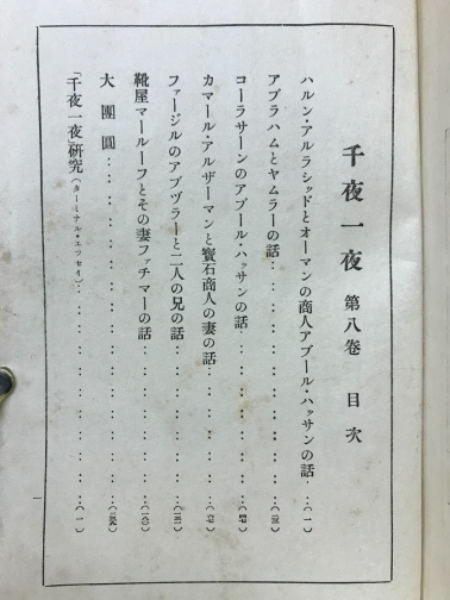 千夜一夜 第八卷 目次
ハルン・アルラシッドとオーマンの商人アブール・ハッサンの話‥‥(一)
アブラハムとヤムラーの話‥‥‥‥‥‥‥‥
コーラサーンのアブール・ハッサンの話‥‥‥‥‥‥
カマール・アルザーマンと寶石商人の妻の話‥‥‥‥‥‥
ファージルのアブヅラーと二人の兄の話‥‥‥‥‥‥
靴屋マールーフとその妻ファチマーの話‥‥‥‥‥‥
大團圓‥‥‥‥‥‥‥‥‥‥‥‥
「千夜一夜」研究(ターミナル・エッセイ)‥‥‥‥‥‥(一)
一